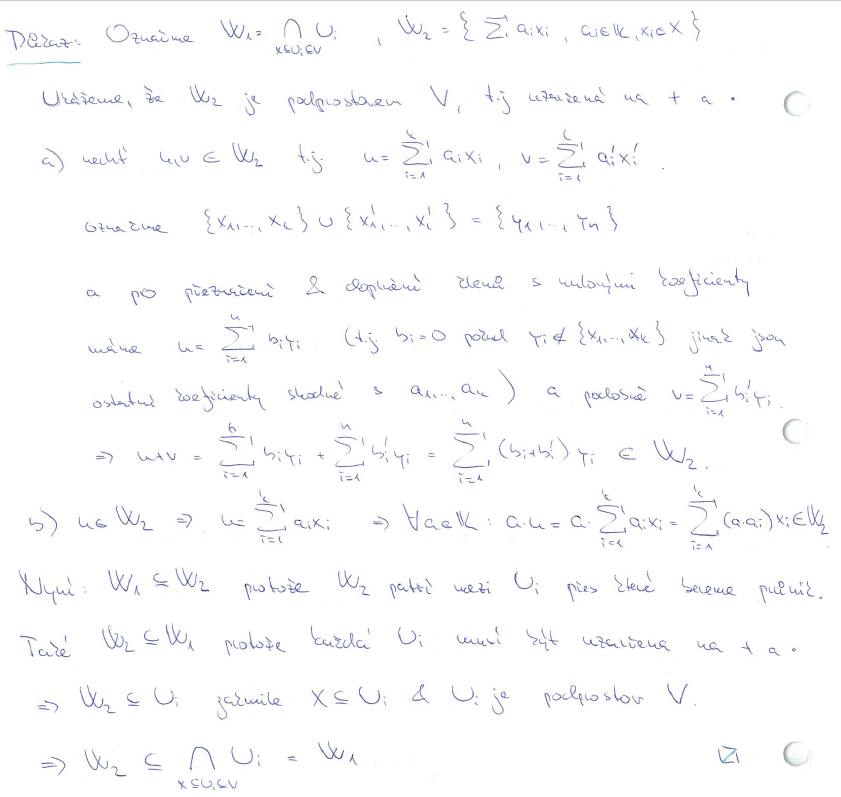 Důkaz: Označme W₁ = ⋂_{X⊆Uᵢ⊆V} Uᵢ , W₂ = { ∑ aᵢxᵢ , aᵢ∈K, xᵢ∈X }
Ukážeme, že W₂ je podprostorem V, t.j. uzavřená na + a ·
a) nechť u,v ∈ W₂ t.j. u = ∑_{i=1}^{k} aᵢxᵢ , v = ∑_{i=1}^{l} aᵢ'xᵢ' .
označme {x₁,..., xₖ} ∪ {x₁',..., xₗ'} = {y₁,..., yₙ}
a po přeznačení & doplnění členů s nulovými koeficienty
máme u = ∑_{i=1}^{n} bᵢyᵢ (t.j. bᵢ=0 pokud yᵢ∉{x₁,...,xₖ} jinak jsou
ostatní koeficienty shodné s a₁,..., aₖ ) a podobně v = ∑_{i=1}^{n} bᵢ'yᵢ .
⇒ u+v = ∑_{i=1}^{n} bᵢyᵢ + ∑_{i=1}^{n} bᵢ'yᵢ = ∑_{i=1}^{n} (bᵢ+bᵢ') yᵢ ∈ W₂ .
b) u∈W₂ ⇒ u = ∑_{i=1}^{k} aᵢxᵢ ⇒ ∀a∈K : a·u = a· ∑_{i=1}^{k} aᵢxᵢ = ∑_{i=1}^{k} (a·aᵢ)xᵢ ∈W₂
Nyní : W₁ ⊆ W₂ protože W₂ patří mezi Uᵢ přes které bereme průnik.
Také W₂ ⊆ W₁ protože každá Uᵢ musí být uzavřena na + a ·
⇒ W₂ ⊆ Uᵢ jakmile X ⊆ Uᵢ & Uᵢ je podprostor V.
⇒ W₂ ⊆ ⋂_{X⊆Uᵢ⊆V} Uᵢ = W₁